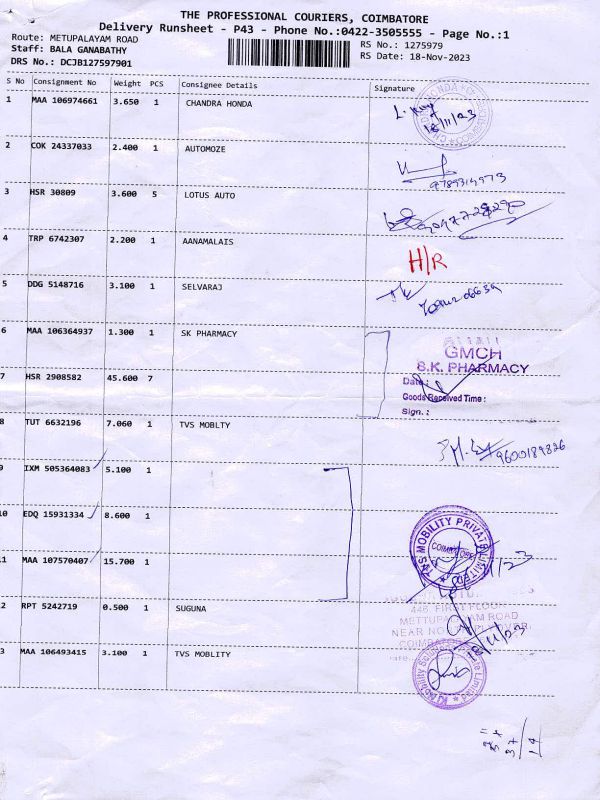 THE PROFESSIONAL COURIERS, COIMBATORE
Delivery Runsheet - P43 - Phone No.:0422-3505555 - Page No.:1
Route: METUPALAYAM ROAD
RS No.: 1275979
Staff: BALA GANABATHY
RS Date: 18-Nov-2023
DRS No.: DCJB127597901
S No Consignment No Weight PCS Consignee Details Signature
1 MAA 106974661 3.650 1 CHANDRA HONDA
18/11/23
2 COK 24337033 2.400 1 AUTOMOZE
9789314973
3 HSR 30809 3.600 5 LOTUS AUTO
4 TRP 6742307 2.200 1 AANAMALAIS
H/R
5 DDG 5148716 3.100 1 SELVARAJ
6 MAA 106364937 1.300 1 SK PHARMACY
GMCH
S.K. PHARMACY
7 HSR 2908582 45.600 7
Date:
Goods Received Time:
Sign.:
8 TUT 6632196 7.060 1 TVS MOBLTY
9600189826
9 IXM 505364083 5.100 1
10 EDQ 15931334 8.600 1
TVS MOBILITY PRIVATE LIMITED
COIMBATORE
11 MAA 107570407 15.700 1
446, FIRST FLOOR
2 RPT 5242719 0.500 1 SUGUNA
METTUPALAYAM ROAD
NEAR
COIMBATORE
3 MAA 106493415 3.100 1 TVS MOBLITY
Private Limited